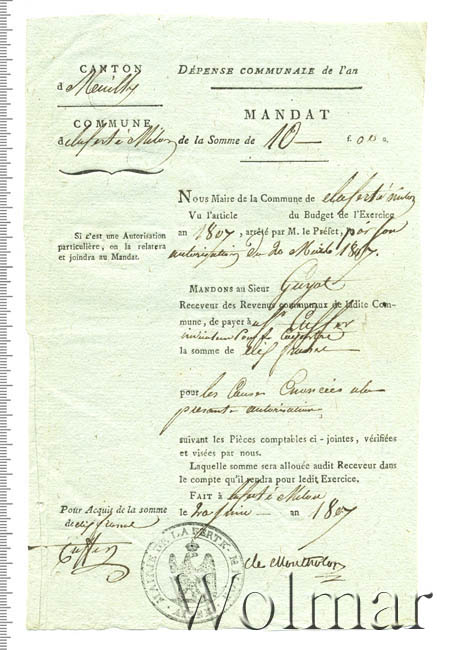 CANTON
d Neuilly
COMMUNE
d laferté Milon
Si c'est une Autorisation
particulière, on la relatera
et joindra au Mandat.
DÉPENSE COMMUNALE de l'an
MANDAT
de la Somme de 10 — f. 0
Nous Maire de la Commune de laferté milon
Vu l'article du Budget de l'Exercice
an 1807, arrêté par M. le Préfet, par son
autorisation du 20 1807.
Mandons au Sieur Guyot
Receveur des Revenus communaux de ladite Com-
mune, de payer à
la somme de dix francs
pour les Causes Enoncées a la
presente autorisation
suivant les Pièces comptables ci-jointes, vérifiées
et visées par nous.
Laquelle somme sera allouée audit Receveur dans
le compte qu'il rendra pour ledit Exercice.
Fait à laferté Milon
le an 1807
de Montholon
Pour Acquis de la somme
de dix francs
MAIRIE DE LAFERTE-MILON
Wolmar